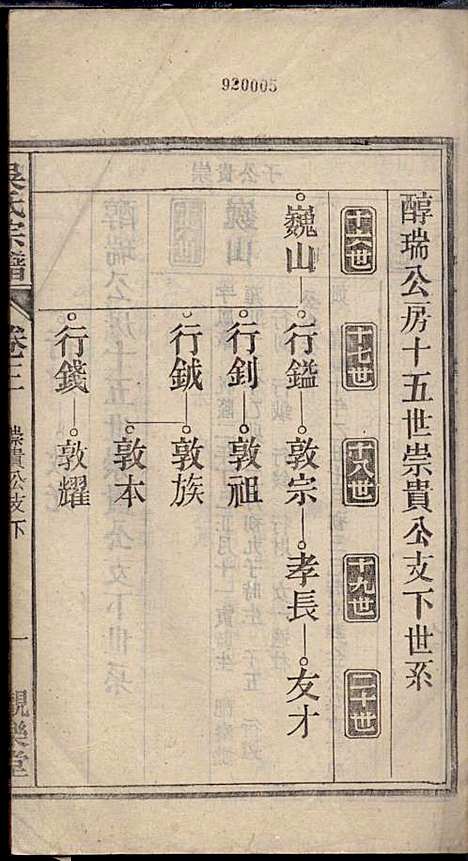 920005
醇瑞公房十五世崇貴公支下世系
十六世
十七世
十八世
十九世
二十世
巍山
行鎰
敦宗
孝長
友才
行釗
敦祖
行鉞
敦族
敦本
行錢
敦耀
吳氏宗譜
卷三
崇貴公支下
一
觀樂堂